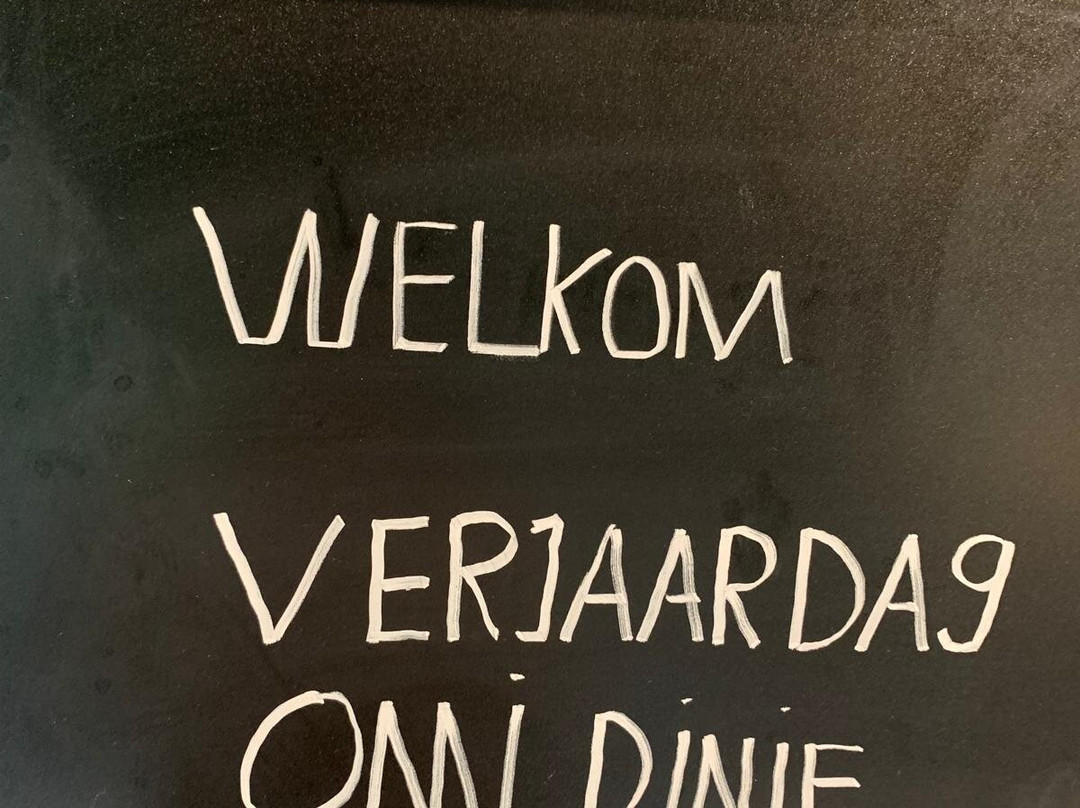 WELKOM
VERJAARDAg
OMi DiNiE